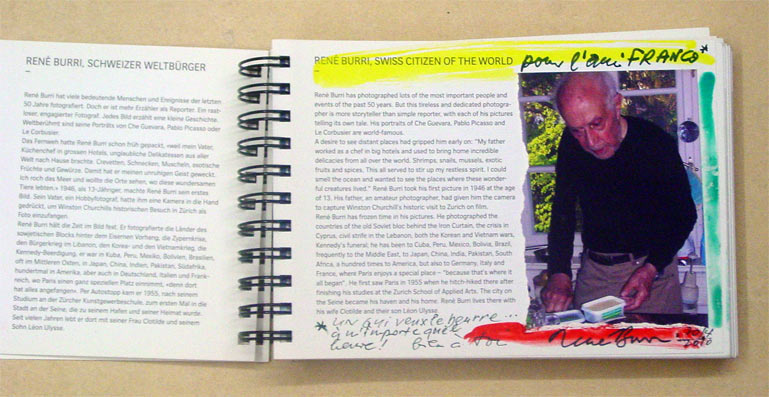 RENÉ BURRI, SCHWEIZER WELTBÜRGER
René Burri hat viele bedeutende Menschen und Ereignisse der letzten
50 Jahre fotografiert. Doch er ist mehr Erzähler als Reporter. Ein rast-
loser, engagierter Fotograf. Jedes Bild erzählt eine kleine Geschichte.
Weltberühmt sind seine Porträts von Che Guevara, Pablo Picasso oder
Le Corbusier.
Das Fernweh hatte René Burri schon früh gepackt, «weil mein Vater,
Küchenchef in grossen Hotels, unglaubliche Delikatessen aus aller
Welt nach Hause brachte. Crevetten, Schnecken, Muscheln, exotische
Früchte und Gewürze. Damit hat er meinen unruhigen Geist geweckt.
Ich roch das Meer und wollte die Orte sehen, wo diese wundersamen
Tiere lebten.» 1946, als 13-Jähriger, machte René Burri sein erstes
Bild. Sein Vater, ein Hobbyfotograf, hatte ihm eine Kamera in die Hand
gedrückt, um Winston Churchills historischen Besuch in Zürich als
Foto einzufangen.
René Burri hält die Zeit im Bild fest. Er fotografierte die Länder des
sowjetischen Blocks hinter dem Eisernen Vorhang, die Zypernkrise,
den Bürgerkrieg im Libanon, den Korea- und den Vietnamkrieg, die
Kennedy-Beerdigung, er war in Kuba, Peru, Mexiko, Bolivien, Brasilien,
oft im Mittleren Osten, in Japan, China, Indien, Pakistan, Südafrika,
hundertmal in Amerika, aber auch in Deutschland, Italien und Frank-
reich, wo Paris einen ganz speziellen Platz einnimmt, «denn dort
hat alles angefangen». Per Autostopp kam er 1955, nach seinem
Studium an der Zürcher Kunstgewerbeschule, zum ersten Mal in die
Stadt an der Seine, die zu seinem Hafen und seiner Heimat wurde.
Seit vielen Jahren lebt er dort mit seiner Frau Clotilde und seinem
Sohn Léon Ulysse.
RENÉ BURRI, SWISS CITIZEN OF THE WORLD
pour l'ami FRANCO*
René Burri has photographed lots of the most important people and
events of the past 50 years. But this tireless and dedicated photogra-
pher is more storyteller than simple reporter, with each of his pictures
telling its own tale. His portraits of Che Guevara, Pablo Picasso and
Le Corbusier are world-famous.
A desire to see distant places had gripped him early on: "My father
worked as a chef in big hotels and used to bring home incredible
delicacies from all over the world. Shrimps, snails, mussels, exotic
fruits and spices. This all served to stir up my restless spirit. I could
smell the ocean and wanted to see the places where these wonder-
ful creatures lived." René Burri took his first picture in 1946 at the age
of 13. His father, an amateur photographer, had given him the camera
to capture Winston Churchill's historic visit to Zurich on film.
René Burri has frozen time in his pictures. He photographed the
countries of the old Soviet bloc behind the Iron Curtain, the crisis in
Cyprus, civil strife in the Lebanon, both the Korean and Vietnam wars,
Kennedy's funeral; he has been to Cuba, Peru, Mexico, Bolivia, Brazil,
frequently to the Middle East, to Japan, China, India, Pakistan, South
Africa, a hundred times to America, but also to Germany, Italy and
France, where Paris enjoys a special place – "because that's where it
all began". He first saw Paris in 1955 when he hitch-hiked there after
finishing his studies at the Zurich School of Applied Arts. The city on
the Seine became his haven and his home. René Burri lives there with
his wife Clotilde and their son Léon Ulysse.
* un qui veux le beurre...
à n'importe quel
heure!
René Burri
2010